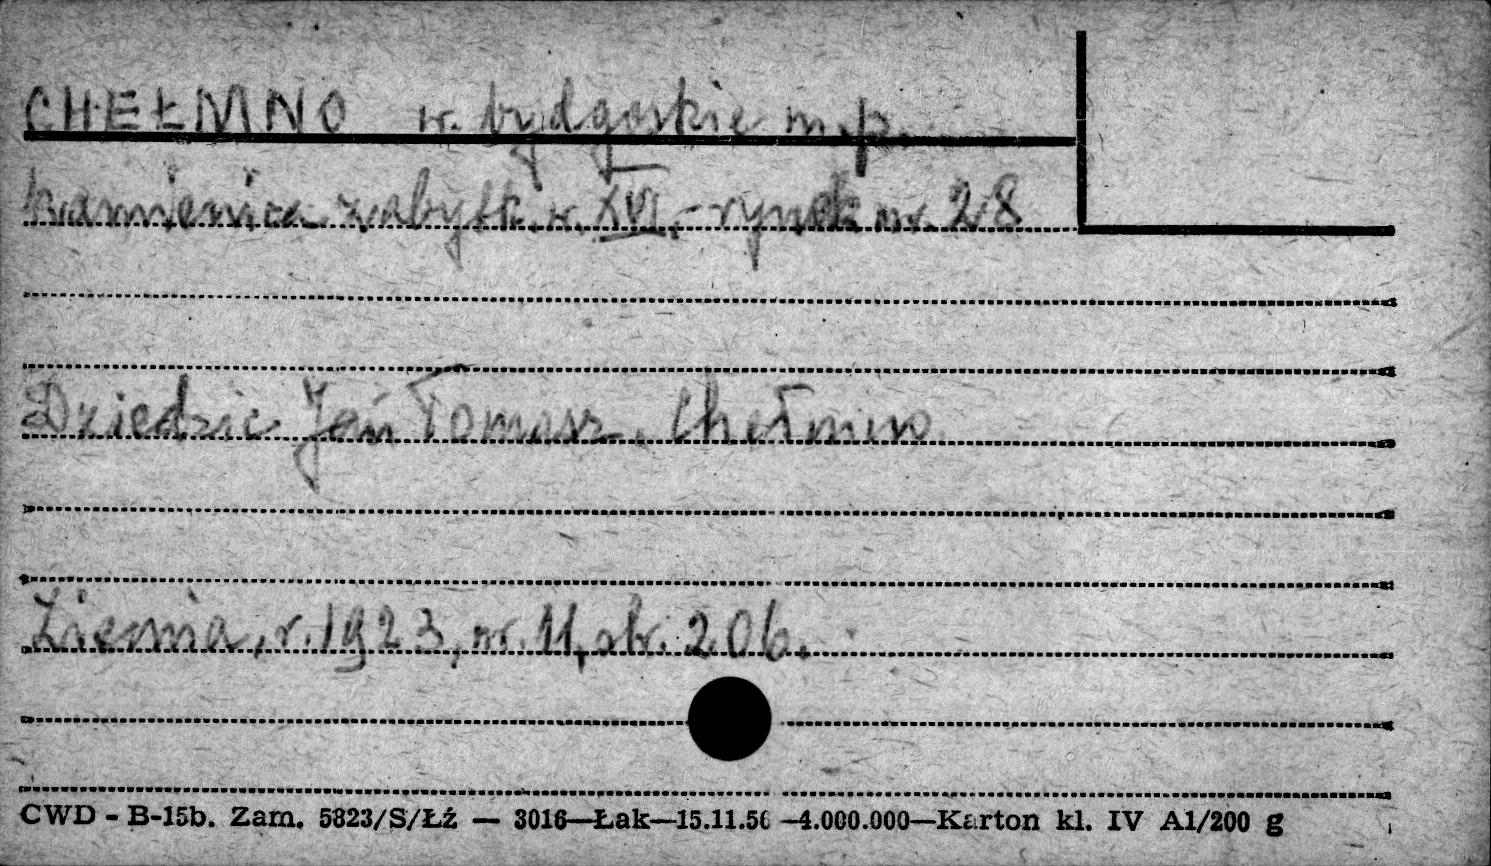 CHEŁMNO w. bydgoskie m.p.
kamienica zabytk. w. XVI. – rynek nr. 28
Dziedzic Jan Tomasz. Chełmno
Ziemia, r. 1923, nr. 11, str. 206.
CWD - B-15b. Zam. 5823/S/Łź — 3016—Łak—15.11.56 —4.000.000—Karton kl. IV A1/200 g